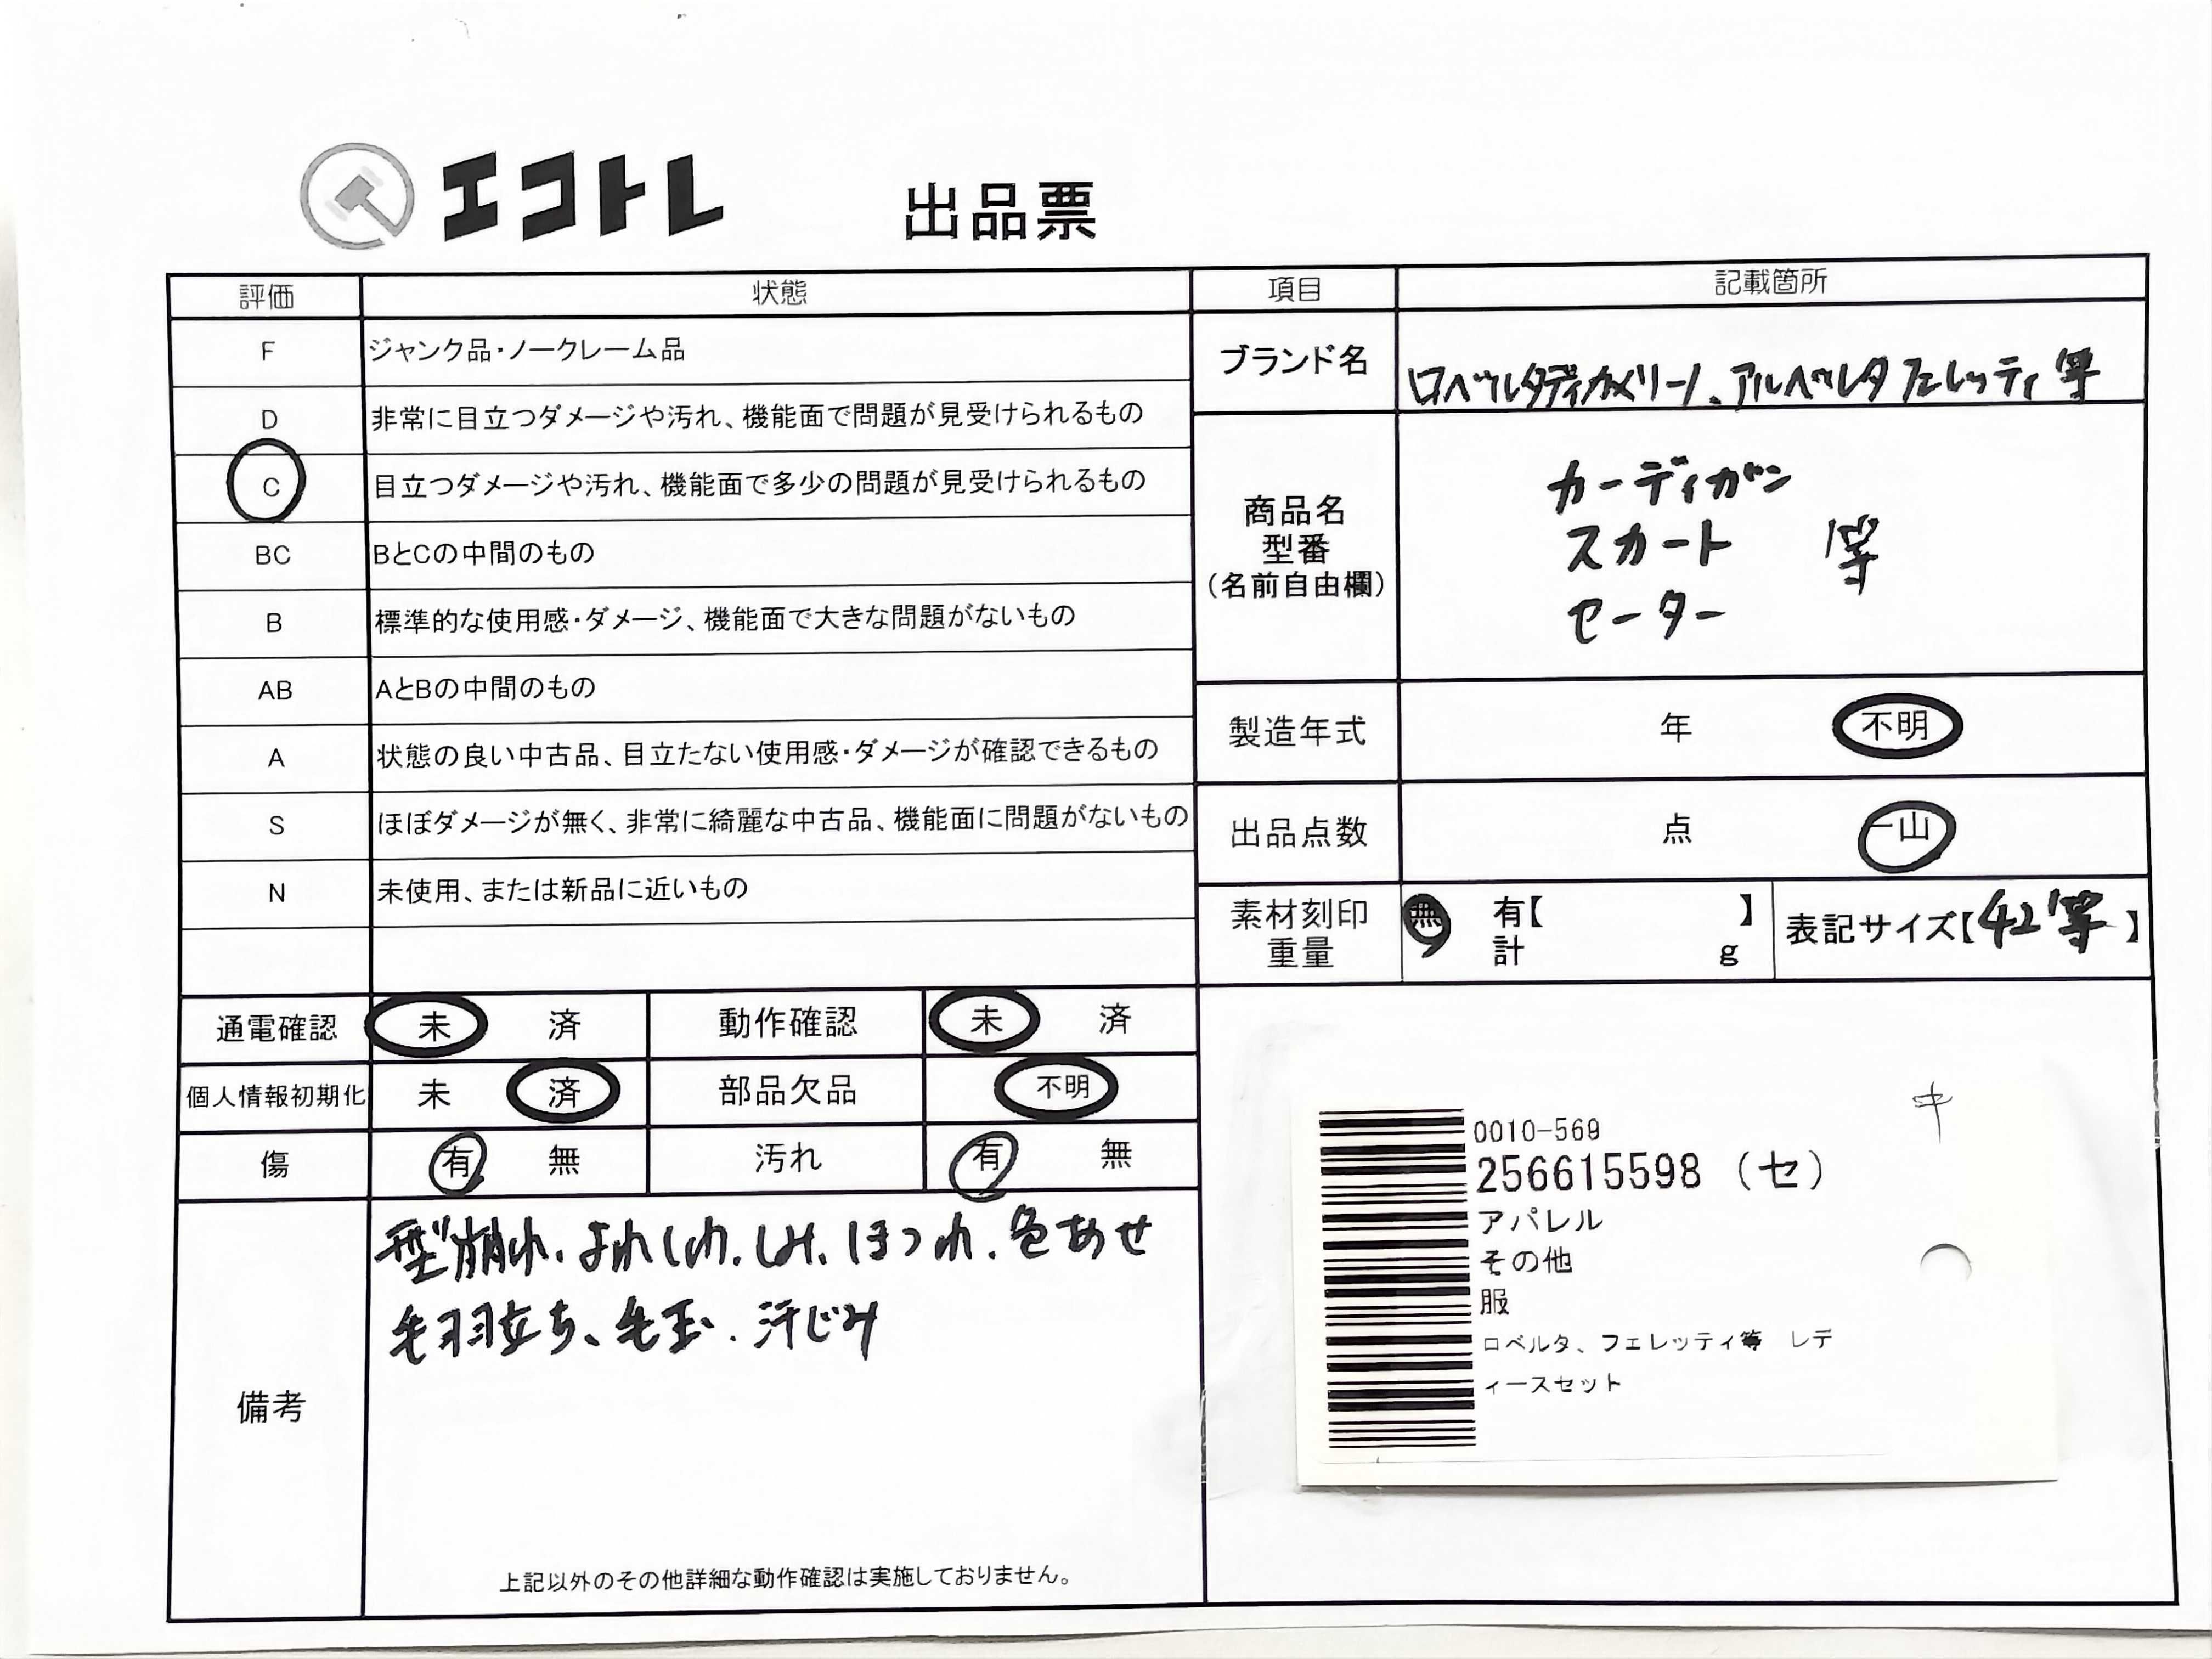 エコトレ 出品票
評価 状態 項目 記載箇所
F ジャンク品・ノークレーム品
D 非常に目立つダメージや汚れ、機能面で問題が見受けられるもの
C 目立つダメージや汚れ、機能面で多少の問題が見受けられるもの
BC BとCの中間のもの
B 標準的な使用感・ダメージ、機能面で大きな問題がないもの
AB AとBの中間のもの
A 状態の良い中古品、目立たない使用感・ダメージが確認できるもの
S ほぼダメージが無く、非常に綺麗な中古品、機能面に問題がないもの
N 未使用、または新品に近いもの
ブランド名 ロベルタディカメリーノ、アルベルタフェレッティ等
商品名
型番
(名前自由欄)
カーディガン
スカート 等
セーター
製造年式 年 不明
出品点数 点 一山
素材刻印 無 有【 】
重量 計 g
表記サイズ【42等】
通電確認 未 済 動作確認 未 済
個人情報初期化 未 済 部品欠品 不明
傷 有 無 汚れ 有 無
備考
型崩れ、よれしわ、しみ、ほつれ、色あせ
毛羽立ち、毛玉、汗じみ
上記以外のその他詳細な動作確認は実施しておりません。
0010-569
256615598 (セ)
アパレル
その他
服
ロベルタ、フェレッティ等 レデ
ィースセット